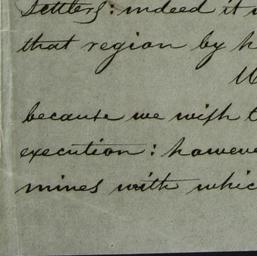 settlers: indeed it
that region by h
because we wish t
execution: howeve
mines with whic